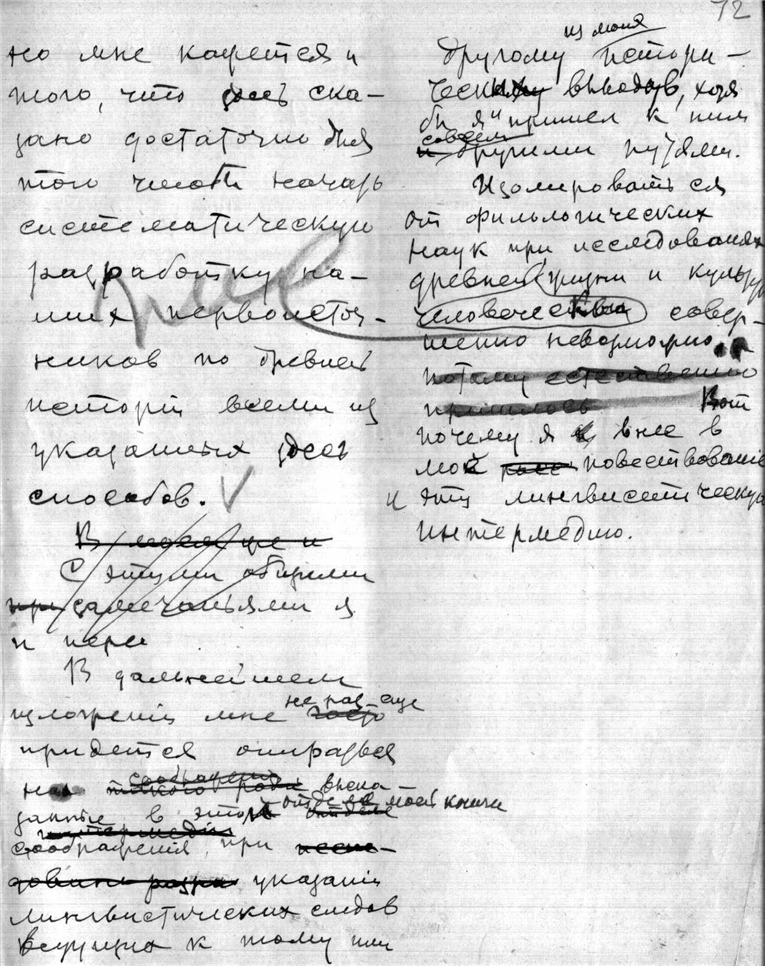 72
но мне кажется и
того, что здесь ска-
зано достаточно для
того чтобы начать
систематическую
разработку на-
ших первоисточ-
ников по древней
истории всеми из
указанных здесь
способов.
С этими общими
замечаниями я
и пере
В дальнейшем
изложении мне не раз еще
придется опираться
на выска-
занные в этом отделе моей книги
соображения, при
указании
лингвистических следов
ведущих к тому или
другому из моих истори-
ческих выводов, хотя
бы я и пришел к ним
совсем
другими путями.
Изолироваться
от филологических
наук при исследованиях
древней жизни и культуры
человечества совер-
шенно невозможно.
потому естественно
пришлось Вот
почему я внес в
мое повествование
и эту лингвистическую
интермедию.